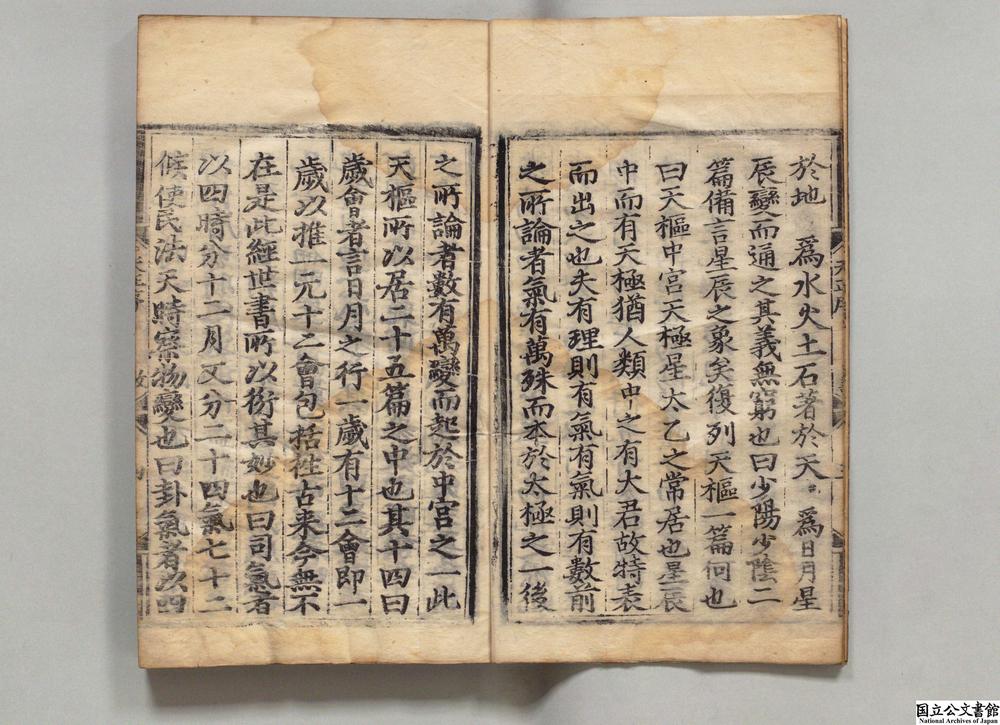 於地　爲水火土石著於天　爲日月星
辰變而通之其義無窮也曰少陽少陰二
篇備言星辰之象矣復列天樞一篇何也
曰天樞中宮天極星太乙之常居也星辰
中而有天極猶人類中之有大君故特表
而出之也夫有理則有氣有氣則有數前
之所論者氣有萬殊而本於太極之一後
之所論者數有萬變而起於中宮之一此
天樞所以居二十五篇之中也其十四曰
歲會者言日月之行一歲有十二會即一
歲以推一元十二會包括徃古来今無不
在是此經世書所以衍其妙也曰司氣者
以四時分十二月又分二十四氣七十二
候使民法天時察物變也曰卦氣者以四
国立公文書館
National Archives of Japan